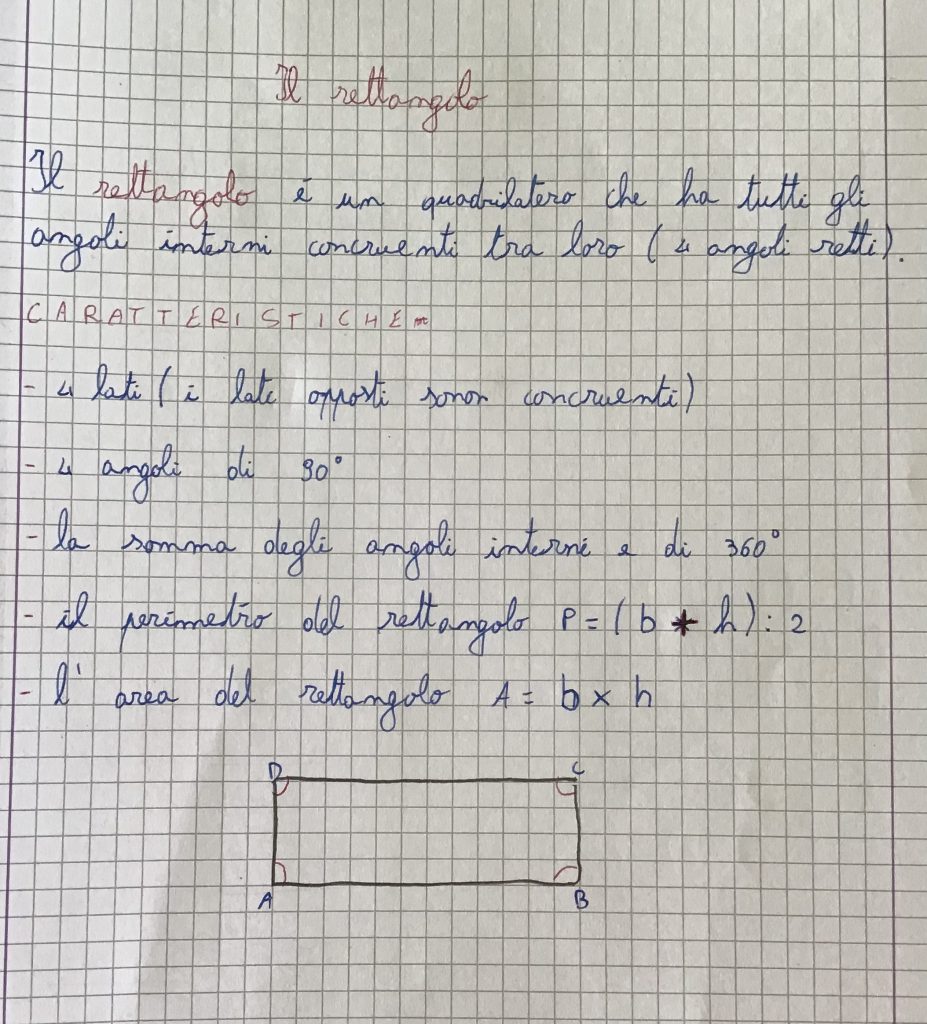 Il rettangolo
Il rettangolo è un quadrilatero che ha tutti gli
angoli interni concruenti tra loro (4 angoli retti).
CARATTERISTICHE
- 4 lati (i lati opposti sonor concruenti)
- 4 angoli di 90°
- la somma degli angoli interni e di 360°
- il perimetro del rettangolo P = (b * h) : 2
- l' area del rettangolo A = b x h
D C
A B